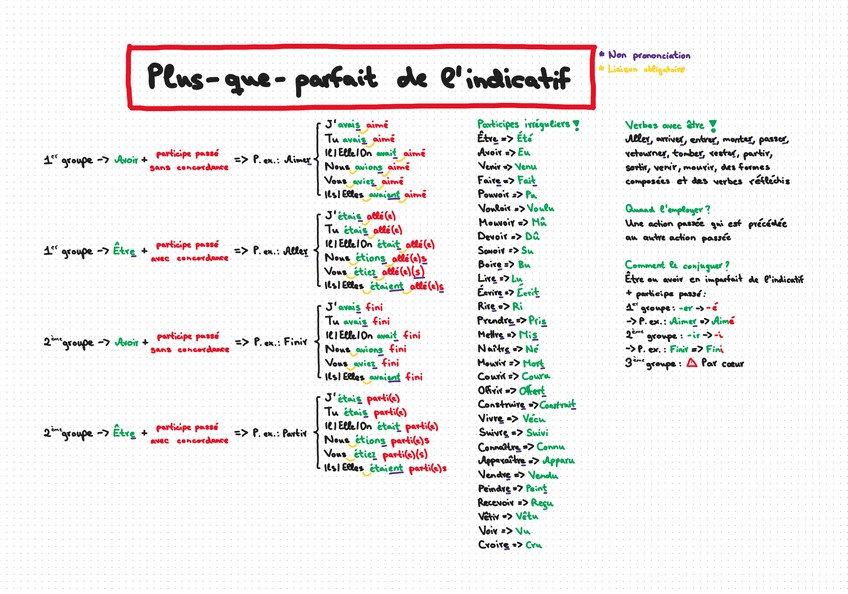 Plus-que-parfait de l'indicatif
* Non prononciation
* Liaison obligatoire
1er groupe -> Avoir + participe passé sans concordance => P. ex.: Aimer
J'avais aimé
Tu avais aimé
Il|Elle|On avait aimé
Nous avions aimé
Vous aviez aimé
Ils|Elles avaient aimé
1er groupe -> Être + participe passé avec concordance => P. ex.: Aller
J'étais allé(e)
Tu étais allé(e)
Il|Elle|On était allé(e)
Nous étions allé(e)s
Vous étiez allé(e)(s)
Ils|Elles étaient allé(e)s
2ème groupe -> Avoir + participe passé sans concordance => P. ex.: Finir
J'avais fini
Tu avais fini
Il|Elle|On avait fini
Nous avions fini
Vous aviez fini
Ils|Elles avaient fini
2ème groupe -> Être + participe passé avec concordance => P. ex.: Partir
J'étais parti(e)
Tu étais parti(e)
Il|Elle|On était parti(e)
Nous étions parti(e)s
Vous étiez parti(e)(s)
Ils|Elles étaient parti(e)s
Participes irréguliers !
Être => Été
Avoir => Eu
Venir => Venu
Faire => Fait
Pouvoir => Pu
Vouloir => Voulu
Mouvoir => Mû
Devoir => Dû
Savoir => Su
Boire => Bu
Lire => Lu
Écrire => Écrit
Rire => Ri
Prendre => Pris
Mettre => Mis
Naître => Né
Mourir => Mort
Courir => Couru
Offrir => Offert
Construire => Construit
Vivre => Vécu
Suivre => Suivi
Connaître => Connu
Apparaître => Apparu
Vendre => Vendu
Peindre => Peint
Recevoir => Reçu
Vêtir => Vêtu
Voir => Vu
Croire => Cru
Verbes avec être !
Aller, arriver, entrer, monter, passer,
retourner, tomber, rester, partir,
sortir, venir, mourir, des formes
composées et des verbes réfléchis
Quand l'employer ?
Une action passée qui est précédée
au autre action passée
Comment le conjuguer ?
Être ou avoir en imparfait de l'indicatif
+ participe passé:
1er groupe: -er -> -é
-> P. ex.: Aimer => Aimé
2ème groupe: -ir -> -i
-> P. ex.: Finir => Fini
3ème groupe: ⚠ Par cœur